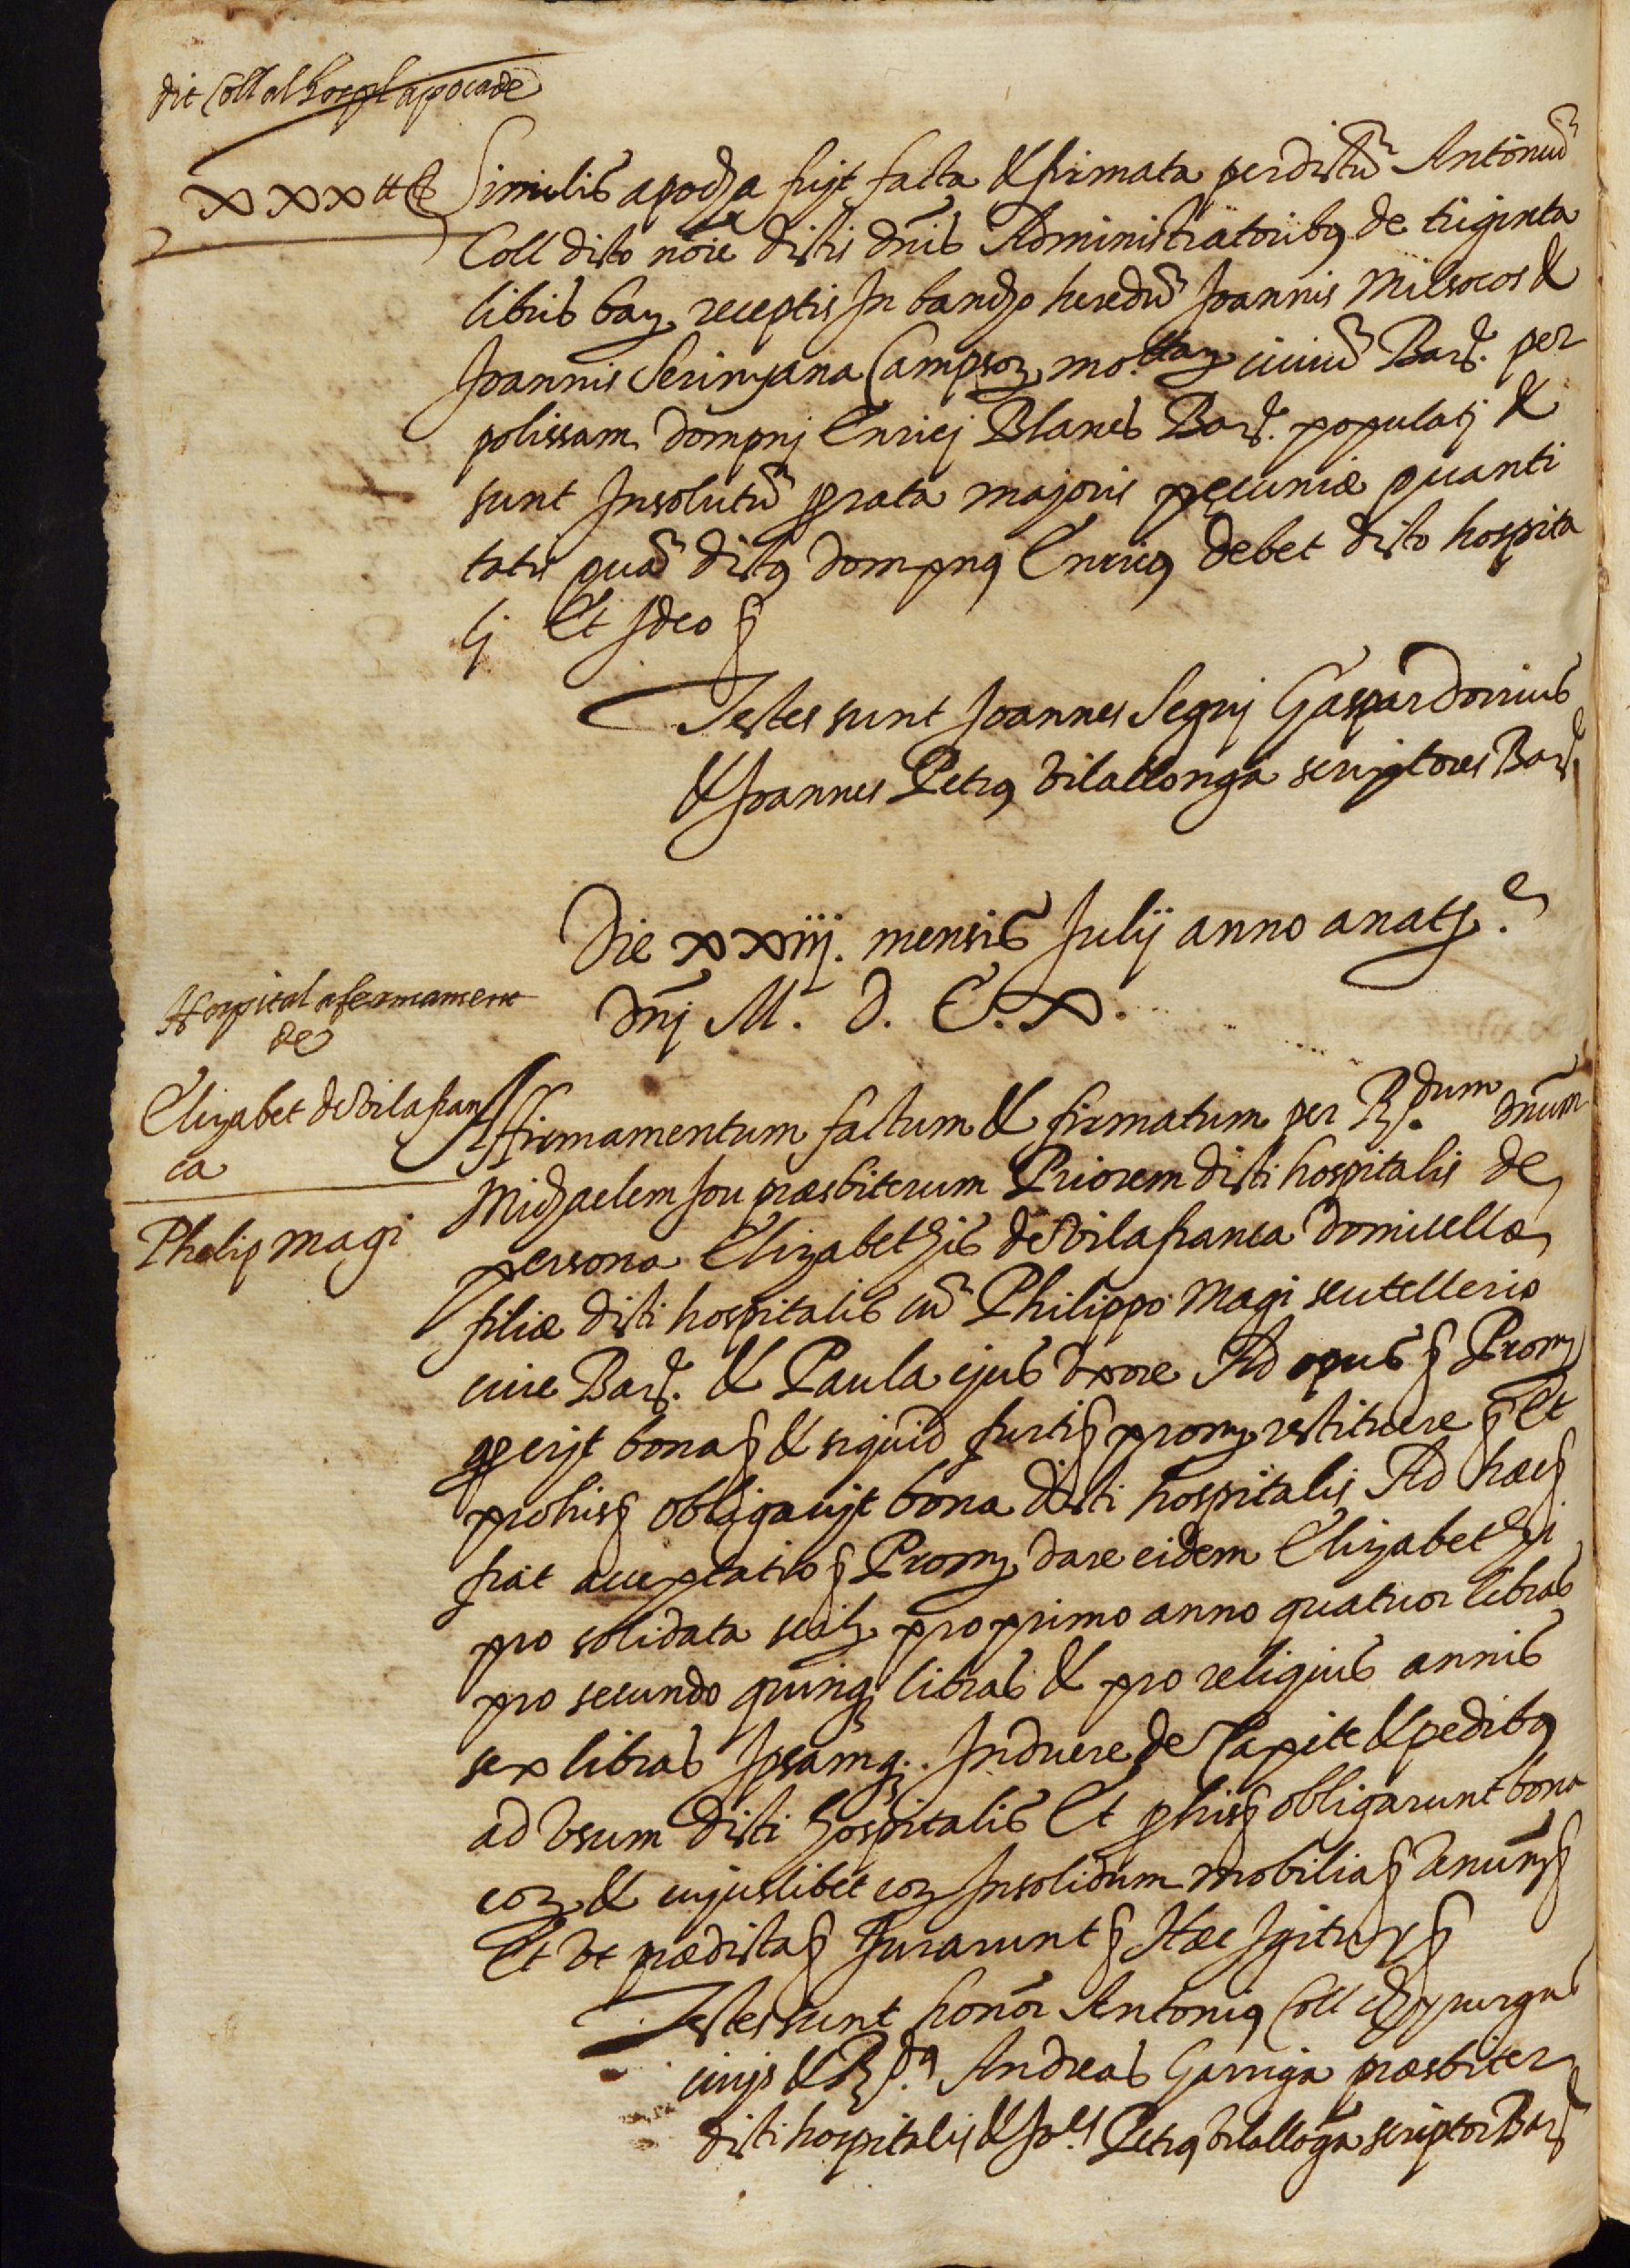 dit Coll al hospl apoca de
xxx ₶
Similis apocha fuyt facta & firmata per dictū Antoniū
Coll dicto noīe dictis dn̄is Administratoribꝯ de triginta
libris baꝝ receptis In bancho heredū Joannis Milsocos &
Joannis Serinyana Campsoꝝ moꝉꝉaꝝ civiū Barª. per
polissam dompnj Enricj Blanes Barª. populatj &
sunt Insolutū ꝓrata majoris pecuniæ quanti
tatis quā dictꝯ dompnꝯ Enricꝯ debet dicto hospita
lj Et Ideo ꝭ
Testes sunt Joannes Segrij Gaspar Dorius
& Joannes Petrꝯ Vilallonga scriptores Barª
Die xxiij. mensis Julij anno a natᵉ.
dn̄j M. D. C. X.
Hospital afermament
de
Elizabet de Vilafran
ca
Phelip Magi
Affirmamentum factum & firmatum per R.dum dn̄um
Michaelem Jou præsbiterum Priorem dicti hospitalis de
persona Elizabethis de Vilafranca domicellæ
filiæ dicti hospitalis cū Philippo Magi scutellerio
cive Barª. & Paula ejus uxore Ad opus ꝭ Promꝫ
ꝙ erit bona ꝭ & siquid furti ꝭ promꝫ restituere ꝭ Et
pro his ꝭ obligavit bona dicti hospitalis Ad hæc ꝭ
fiat acceptatio ꝭ Promꝫ dare eidem Elizabethi
pro solidata scilꝫ pro primo anno quatuor libras
pro secundo quinqꝫ libras & pro reliquis annis
sex libras Ipsamqꝫ. Induere de Capite & pedibꝯ
ad Usum dicti hospitalis Et ꝓ his ꝭ obligarunt bona
eoꝝ & cujuslibet eoꝝ Insolidum mobilia ꝭ
Et Ut prædicta ꝭ Jurarunt ꝭ Hæc Igitur ꝭ
Testes sunt honōr Antoniꝯ Coll Chyrurgus
civis & R.dꝯ Andreas Garriga præsbiter
dicti hospitalis & Joēs Petrꝯ Vilallōga scriptor Barª